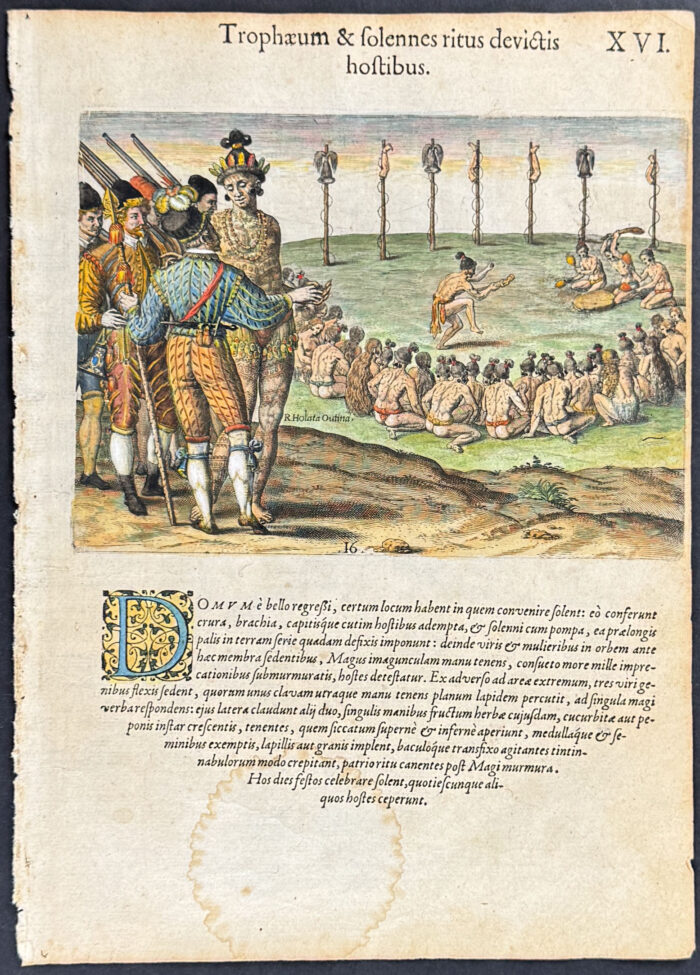 Trophæum & ſolennes ritus devictis
hoſtibus.
XVI.
R. Holata Outina.
.16.
DOMVM è bello regreſſi, certum locum habent in quem convenire ſolent: eò conferunt
crura, brachia, capitiſque cutim hoſtibus adempta, & ſolenni cum pompa, ea prælongis
palis in terram ſerie quadam defixis imponunt: deinde viris & mulieribus in orbem ante
hæc membra ſedentibus, Magus imagunculam manu tenens, conſueto more mille impre-
cationibus ſubmurmuratis, hoſtes deteſtatur. Ex adverſo ad areæ extremum, tres viri ge-
nibus flexis ſedent, quorum unus clavam utraque manu tenens planum lapidem percutit, ad ſingula magi
verba reſpondens: ejus latera claudunt alij duo, ſingulis manibus fructum herbæ cujuſdam, cucurbitæ aut pe-
ponis inſtar creſcentis, tenentes, quem ſiccatum ſupernè & infernè aperiunt, medullaque & ſe-
minibus exemptis, lapillis aut granis implent, baculoque transfixo agitantes tintin-
nabulorum modo crepitant, patrio ritu canentes poſt Magi murmura.
Hos dies feſtos celebrare ſolent, quotieſcunque ali-
quos hoſtes ceperunt.